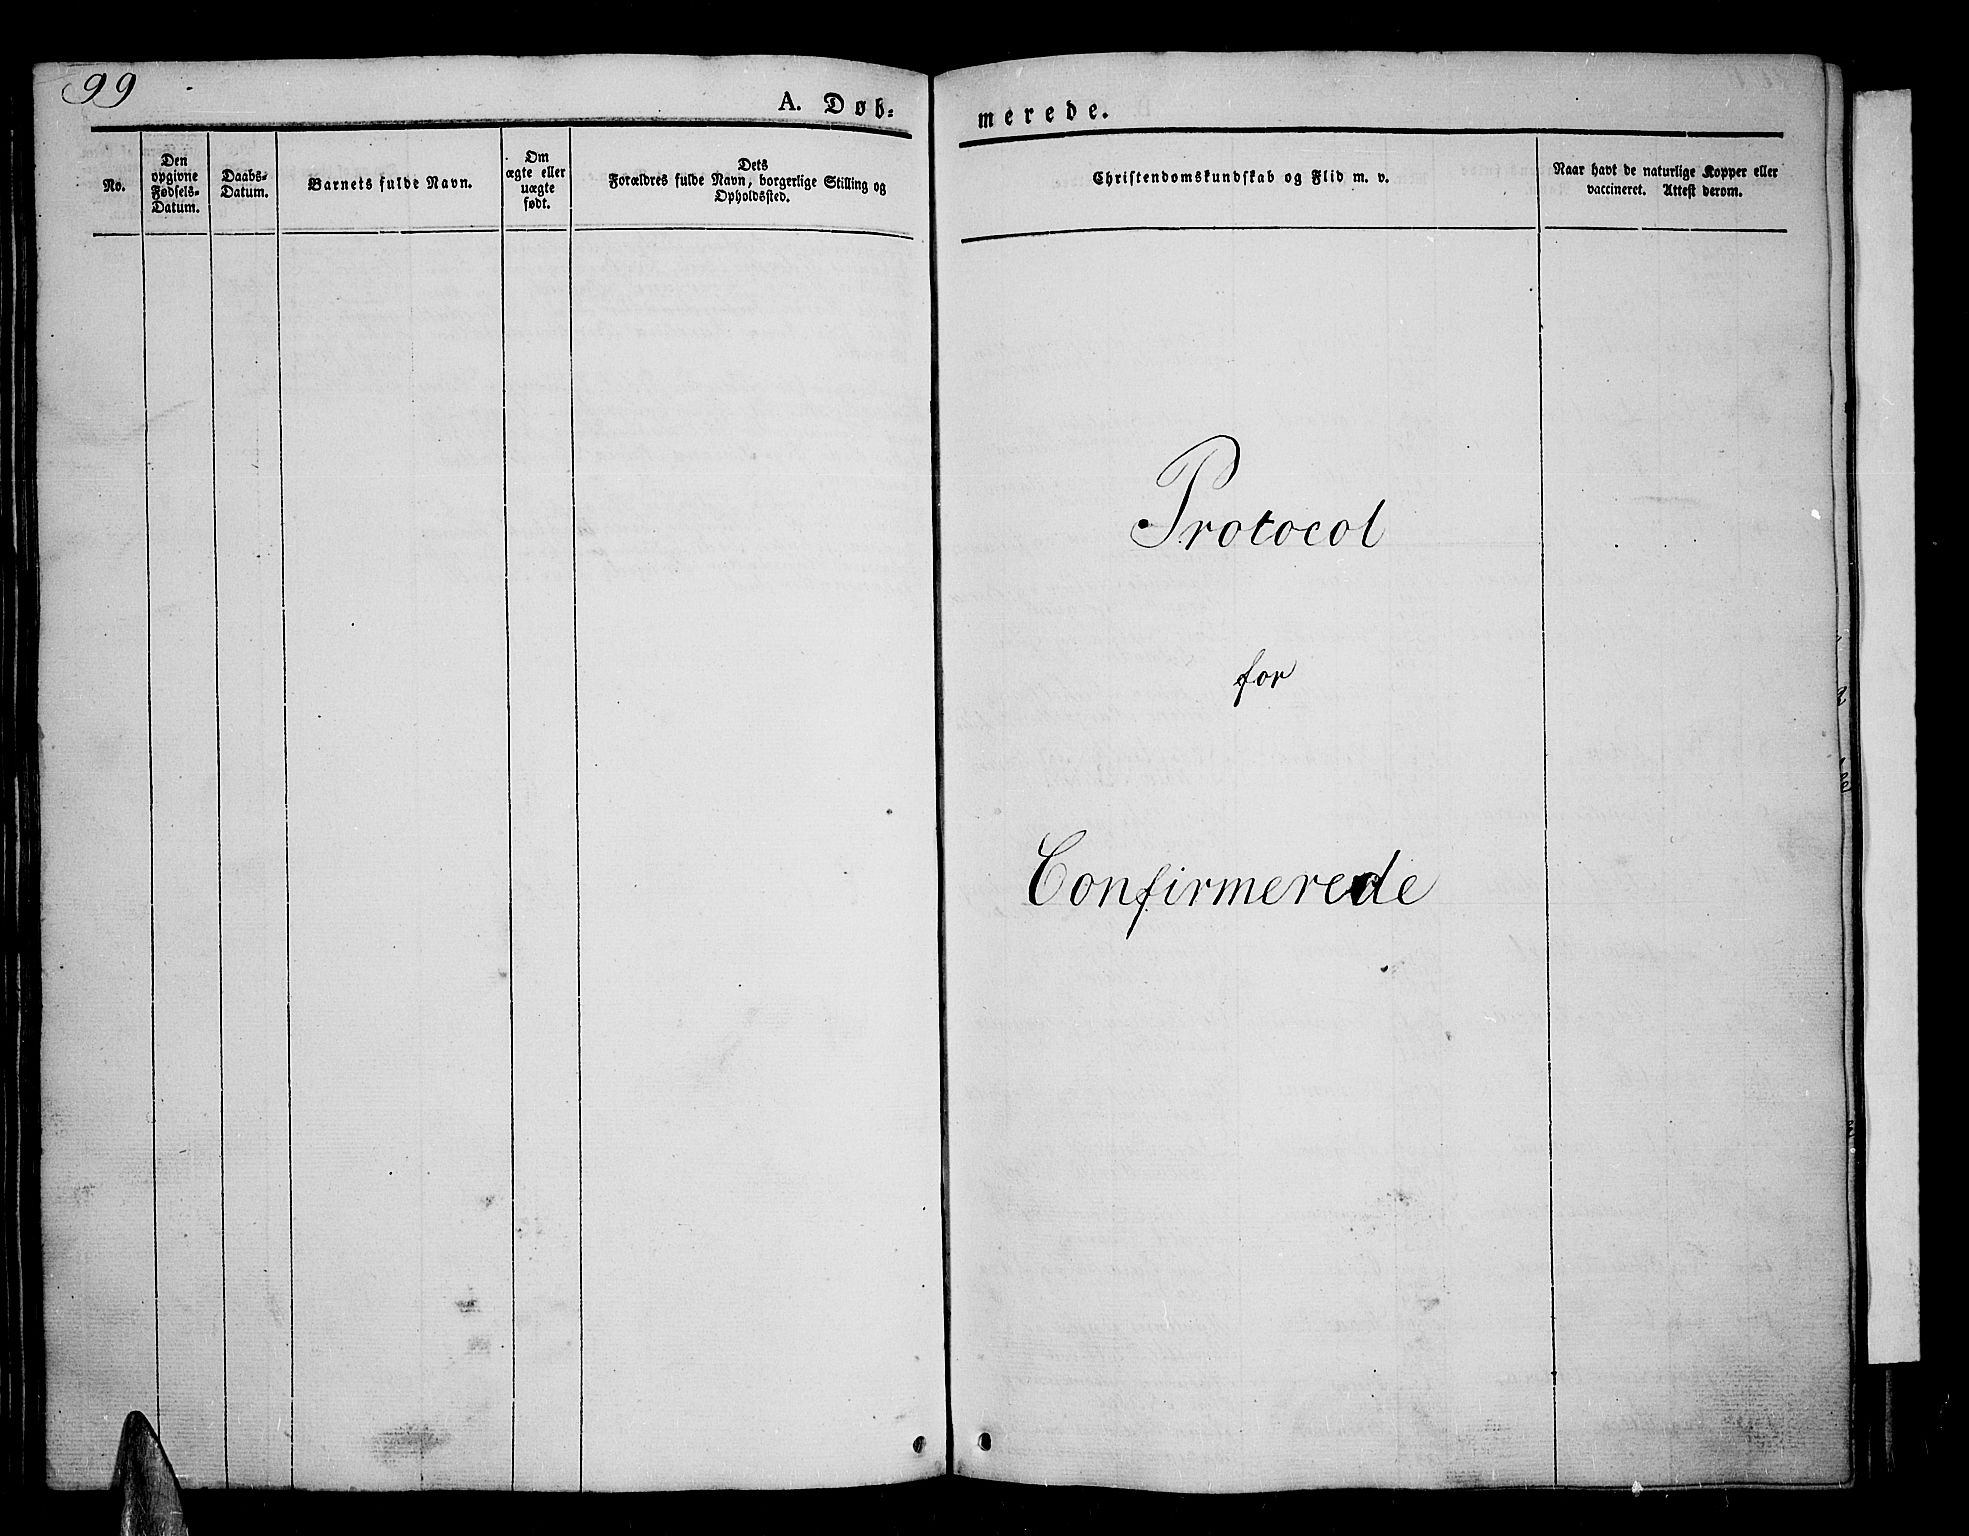 99
A. Døb-
No.
Den
opgivne
Fødsels-
Datum.
Daabs-
Datum.
Barnets fulde Navn.
Om
ægte eller
uægte
født.
Dets
Forældres fulde Navn, borgerlige Stilling og
Opholdssted.
merede.
Christendomskundskab og Flid m. v.
Naar havt de naturlige Kopper eller
vaccineret. Attest derom.
Protocol
for
Confirmerede